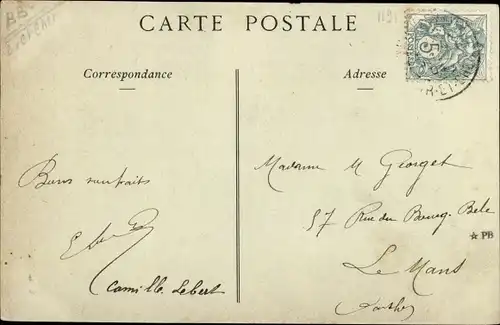 CARTE POSTALE
Correspondance
Adresse
5
Madame M Georget
Bons souhaits
57 Rue du Bourg Belé
PB
Le Mans
Camille Lebert
Sarthe